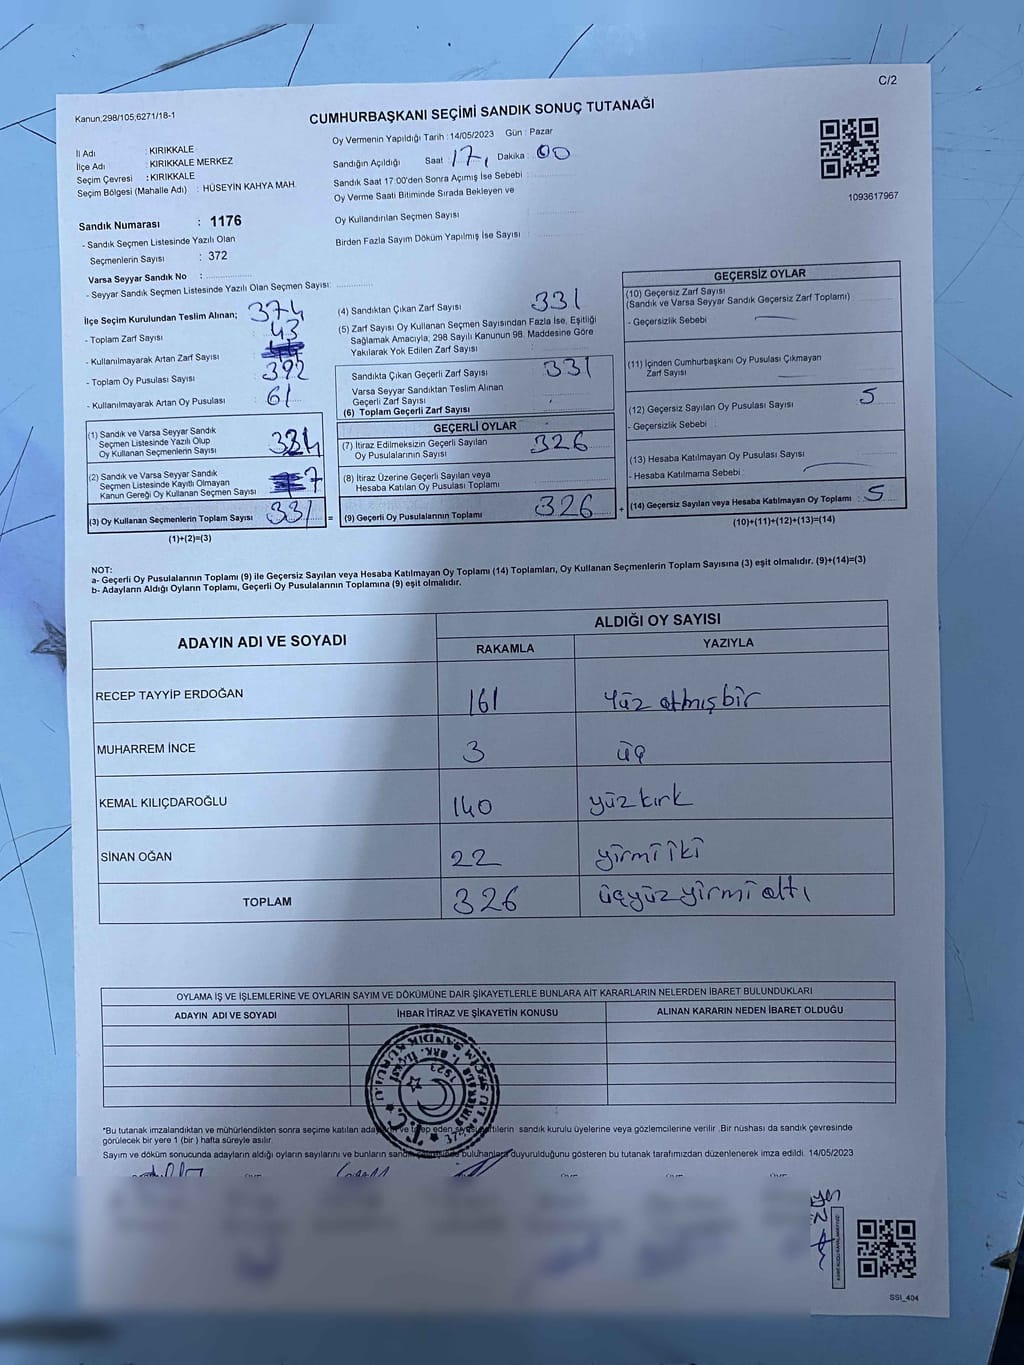 C/2
Kanun,298/105,6271/18-1
CUMHURBAŞKANI SEÇİMİ SANDIK SONUÇ TUTANAĞI
İl Adı : KIRIKKALE
İlçe Adı : KIRIKKALE MERKEZ
Seçim Çevresi : KIRIKKALE
Seçim Bölgesi (Mahalle Adı) : HÜSEYİN KAHYA MAH.
Oy Vermenin Yapıldığı Tarih : 14/05/2023 Gün : Pazar
Sandığın Açıldığı Saat 17, Dakika : 00
Sandık Saat 17:00'den Sonra Açımış İse Sebebi :
Oy Verme Saati Bitiminde Sırada Bekleyen ve
Oy Kullandırılan Seçmen Sayısı
Birden Fazla Sayım Döküm Yapılmış İse Sayısı :
1093617967
Sandık Numarası : 1176
- Sandık Seçmen Listesinde Yazılı Olan
Seçmenlerin Sayısı : 372
Varsa Seyyar Sandık No :
- Seyyar Sandık Seçmen Listesinde Yazılı Olan Seçmen Sayısı:
İlçe Seçim Kurulundan Teslim Alınan;
- Toplam Zarf Sayısı 374
- Kullanılmayarak Artan Zarf Sayısı 43
- Toplam Oy Pusulası Sayısı 392
- Kullanılmayarak Artan Oy Pusulası 61
(1) Sandık ve Varsa Seyyar Sandık
Seçmen Listesinde Yazılı Olup
Oy Kullanan Seçmenlerin Sayısı
(2) Sandık ve Varsa Seyyar Sandık
Seçmen Listesinde Kayıtlı Olmayan
Kanun Gereği Oy Kullanan Seçmen Sayısı 7
(3) Oy Kullanan Seçmenlerin Toplam Sayısı 331 =
(1)+(2)=(3)
(4) Sandıktan Çıkan Zarf Sayısı 331
(5) Zarf Sayısı Oy Kullanan Seçmen Sayısından Fazla İse, Eşitliği
Sağlamak Amacıyla, 298 Sayılı Kanunun 98. Maddesine Göre
Yakılarak Yok Edilen Zarf Sayısı
Sandıkta Çıkan Geçerli Zarf Sayısı 331
Varsa Seyyar Sandıktan Teslim Alınan
Geçerli Zarf Sayısı
(6) Toplam Geçerli Zarf Sayısı
GEÇERLİ OYLAR
(7) İtiraz Edilmeksizin Geçerli Sayılan
Oy Pusulalarının Sayısı 326
(8) İtiraz Üzerine Geçerli Sayılan veya
Hesaba Katılan Oy Pusulası Toplamı
(9) Geçerli Oy Pusulalarının Toplamı 326 +
GEÇERSİZ OYLAR
(10) Geçersiz Zarf Sayısı
(Sandık ve Varsa Seyyar Sandık Geçersiz Zarf Toplamı)
- Geçersizlik Sebebi
(11) İçinden Cumhurbaşkanı Oy Pusulası Çıkmayan
Zarf Sayısı
(12) Geçersiz Sayılan Oy Pusulası Sayısı 5
- Geçersizlik Sebebi
(13) Hesaba Katılmayan Oy Pusulası Sayısı
- Hesaba Katılmama Sebebi
(14) Geçersiz Sayılan veya Hesaba Katılmayan Oy Toplamı : 5
(10)+(11)+(12)+(13)=(14)
NOT:
a- Geçerli Oy Pusulalarının Toplamı (9) ile Geçersiz Sayılan veya Hesaba Katılmayan Oy Toplamı (14) Toplamları, Oy Kullanan Seçmenlerin Toplam Sayısına (3) eşit olmalıdır. (9)+(14)=(3)
b- Adayların Aldığı Oyların Toplamı, Geçerli Oy Pusulalarının Toplamına (9) eşit olmalıdır.
ADAYIN ADI VE SOYADI
ALDIĞI OY SAYISI
RAKAMLA YAZIYLA
RECEP TAYYİP ERDOĞAN 161 Yüz atmışbir
MUHARREM İNCE 3 üç
KEMAL KILIÇDAROĞLU 140 yüzkırk
SİNAN OĞAN 22 yirmi iki
TOPLAM 326 üçyüz yirmi altı
OYLAMA İŞ VE İŞLEMLERİNE VE OYLARIN SAYIM VE DÖKÜMÜNE DAİR ŞİKAYETLERLE BUNLARA AİT KARARLARIN NELERDEN İBARET BULUNDUKLARI
ADAYIN ADI VE SOYADI İHBAR İTİRAZ VE ŞİKAYETİN KONUSU ALINAN KARARIN NEDEN İBARET OLDUĞU
*Bu tutanak imzalandıktan ve mühürlendikten sonra seçime katılan ve sandık kurulu üyelerine veya gözlemcilerine verilir .Bir nüshası da sandık çevresinde
görülecek bir yere 1 (bir ) hafta süreyle asılır.
Sayım ve döküm sonucunda adayların aldığı oyların sayılarını ve bunların duyurulduğunu gösteren bu tutanak tarafımızdan düzenlenerek imza edildi. 14/05/2023
SSI_404